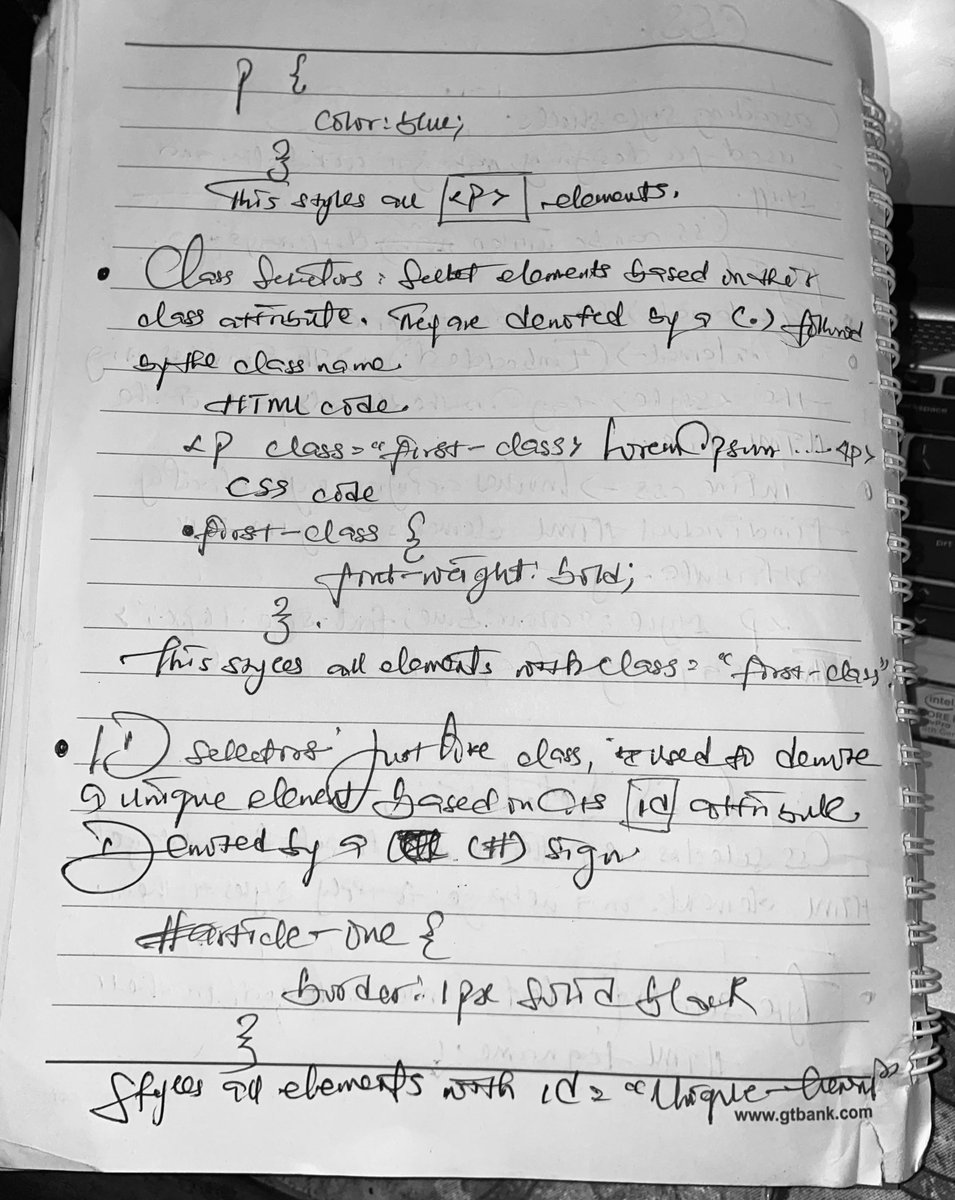 p {
color: blue;
}
This styles all <p> elements.
• Class Selectors: Select elements based on their
class attribute. They are denoted by a (.) followed
by the class name.
HTML code.
<p class="first-class> Lorem Ipsum ... <p>
CSS code
.first-class {
font-weight: bold;
}.
This styles all elements with class = "first-class".
• ID selectors: Just like class, used to denote
a unique element based on its id attribute.
Denoted by a (#) sign
#article-one {
border: 1px solid black
}
Styles all elements with id = "Unique-
www.gtbank.com
intel